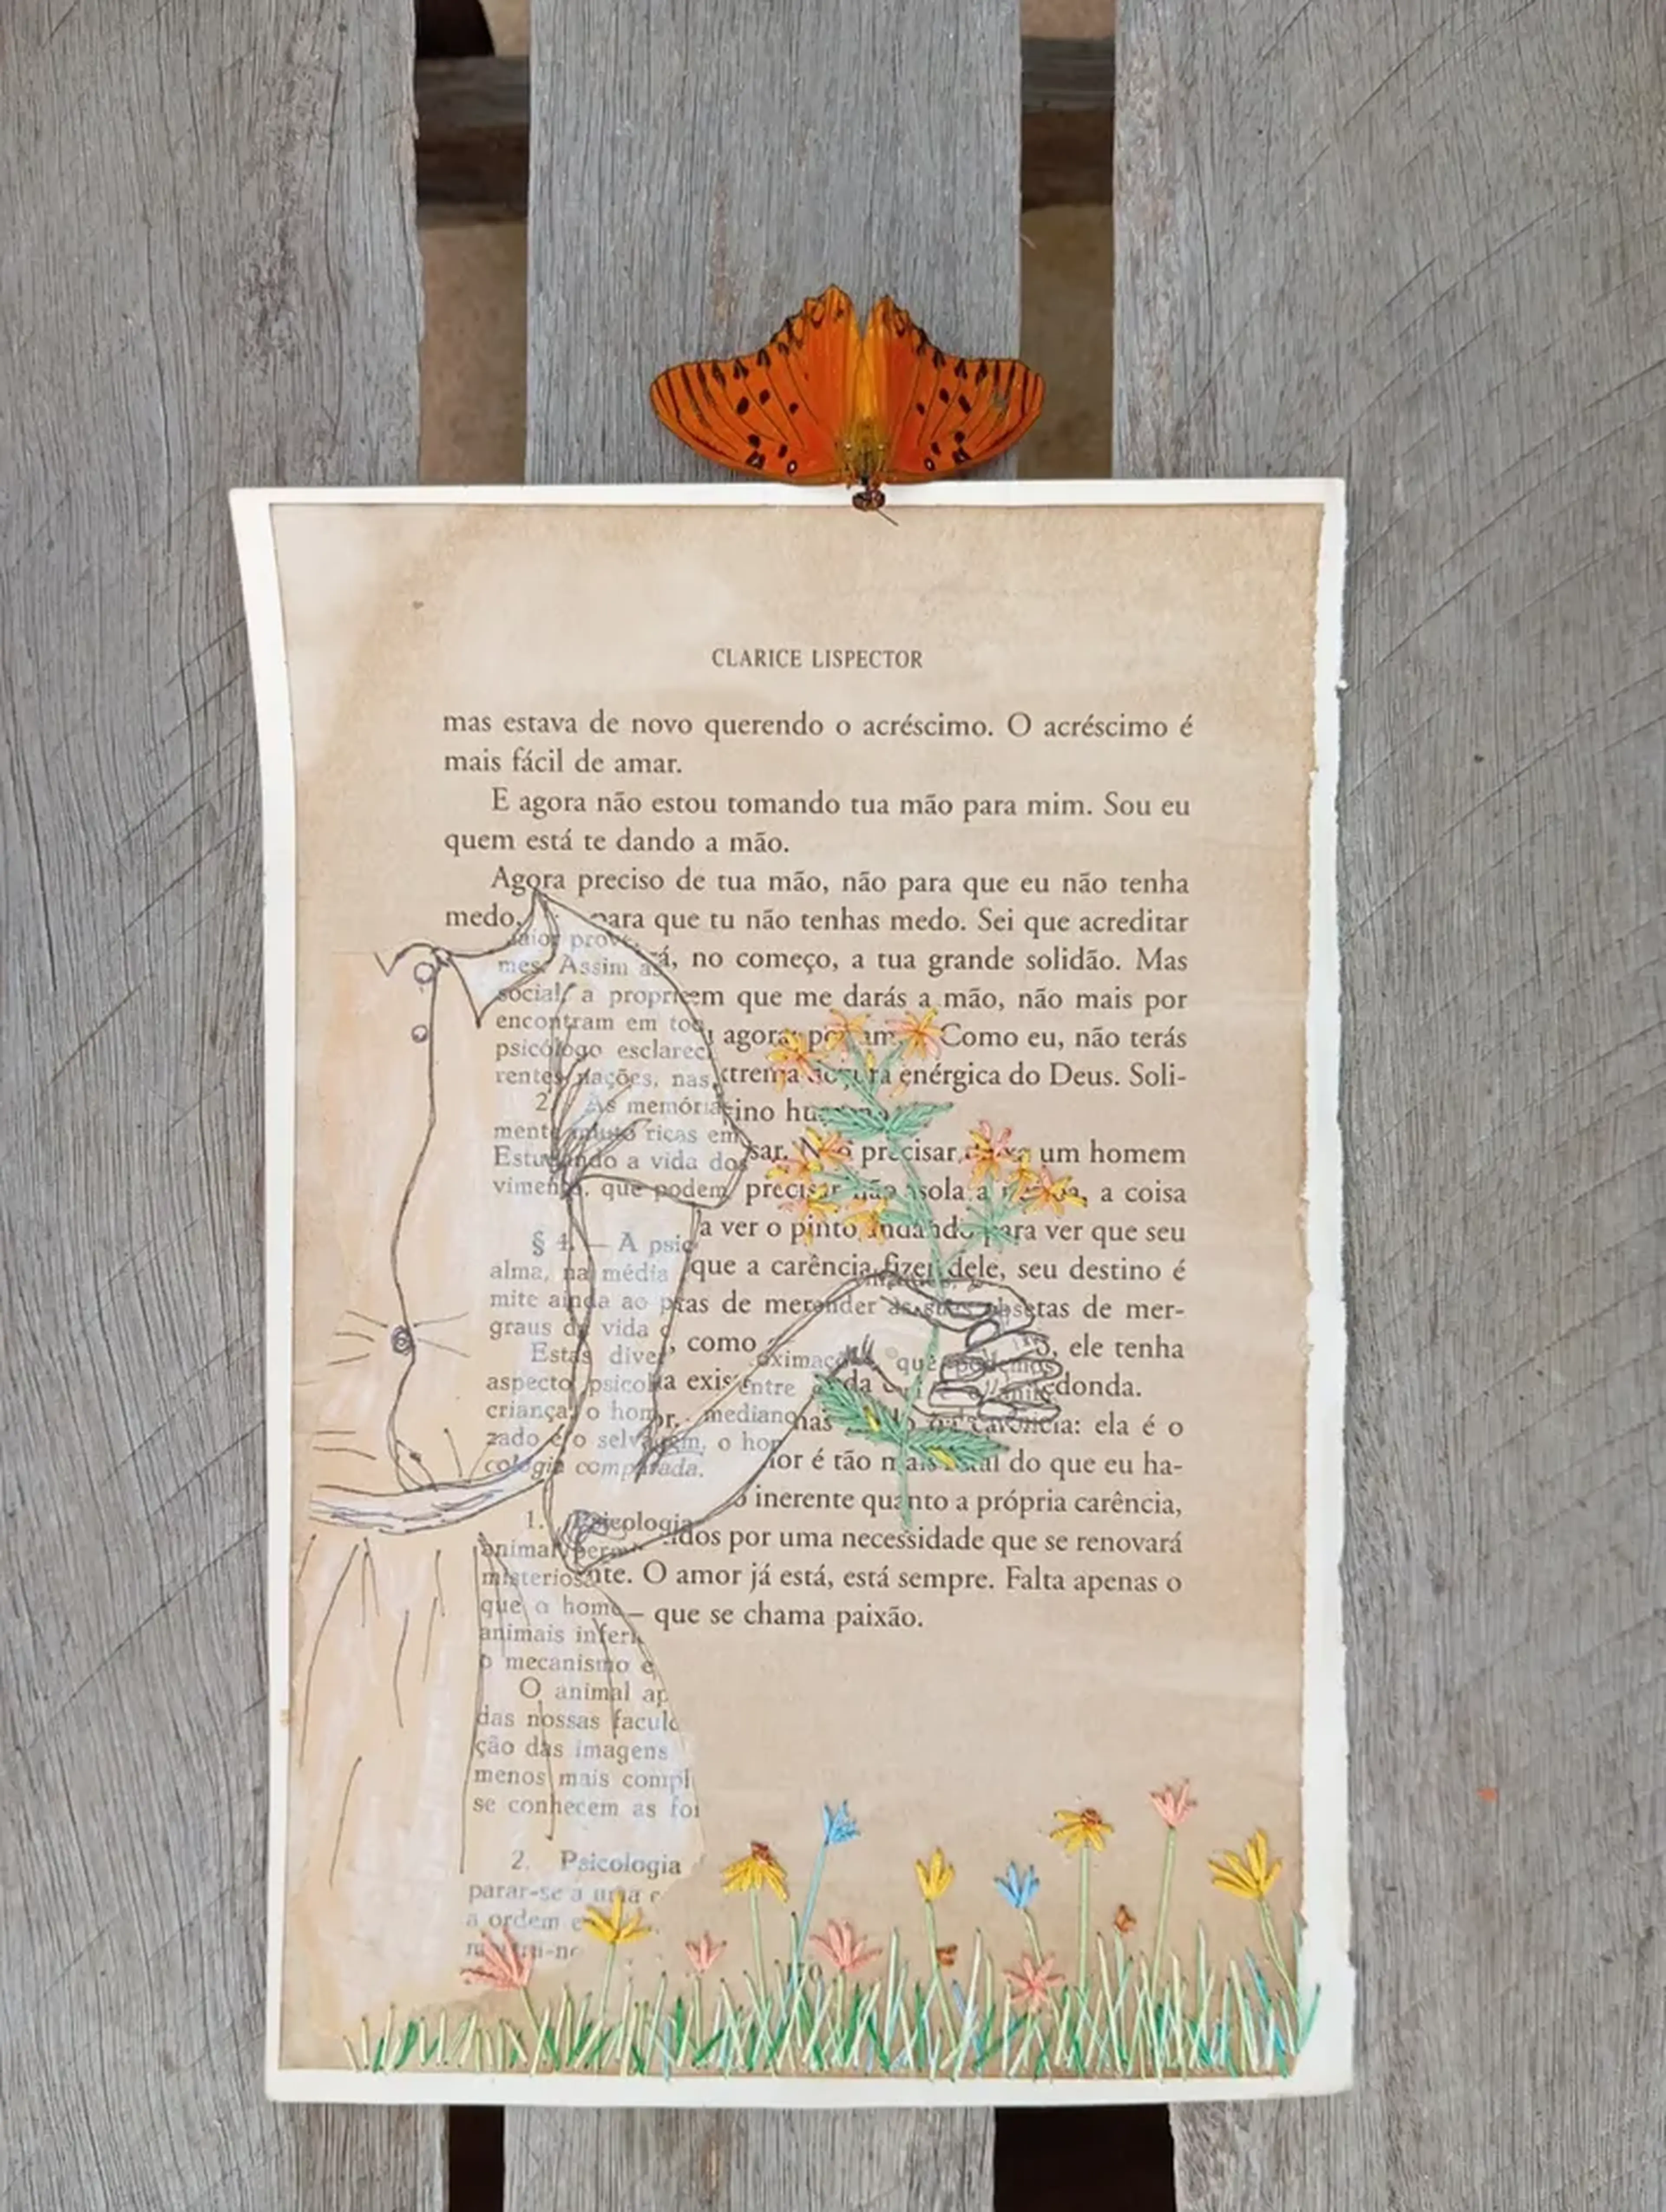 CLARICE LISPECTOR
mas estava de novo querendo o acréscimo. O acréscimo é
mais fácil de amar.
E agora não estou tomando tua mão para mim. Sou eu
quem está te dando a mão.
Agora preciso de tua mão, não para que eu não tenha
medo, para que tu não tenhas medo. Sei que acreditar
á, no começo, a tua grande solidão. Mas
em que me darás a mão, não mais por
agora por am Como eu, não terás
xtrema doçura enérgica do Deus. Soli-
ino humano
sar. Não precisar deixa um homem
precisar não isola a pessoa, a coisa
a ver o pinto andando para ver que seu
que a carência fizer dele, seu destino é
tas de mer-
, como ele tenha
a exis donda.
carência: ela é o
or é tão mais fatal do que eu ha-
o inerente quanto a própria carência,
idos por uma necessidade que se renovará
nte. O amor já está, está sempre. Falta apenas o
– que se chama paixão.
aior prov
mes. Assim as
social, a propri
encontram em to
psicólogo esclarec
rentes nações, nas
2. As memória
mente muito ricas em
Estudando a vida dos
vimento, que podem
§ 4. — A psic
alma, na média
mite ainda ao p
graus da vida
Estas dive
aspecto psicol
criança, o hom
zado e o selvagem, o ho
cologia comparada.
oximaç que podemos
entre
mediano
1. Psicologia
animal perm
misterios
que o home
animais inferi
o mecanismo e
O animal ap
das nossas faculd
ção das imagens
menos mais compl
se conhecem as for
2. Psicologia
parar-se a uma c
a ordem e